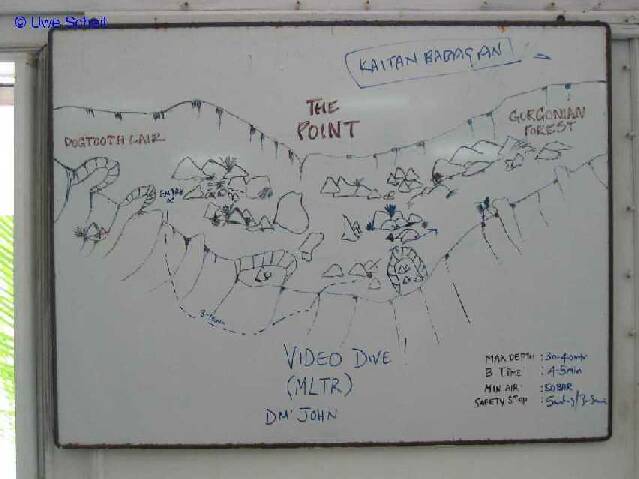 © Uwe Scheil
KAITAN BADAGAN
THE
POINT
DOGTOOTH LAIR
GORGONIAN
FOREST
VIDEO DIVE
(MLTR)
DM' JOHN
MAX DEPTH : 30-40mtr
B TIME : 45min
MIN AIR : 50BAR
SAFETY STOP :